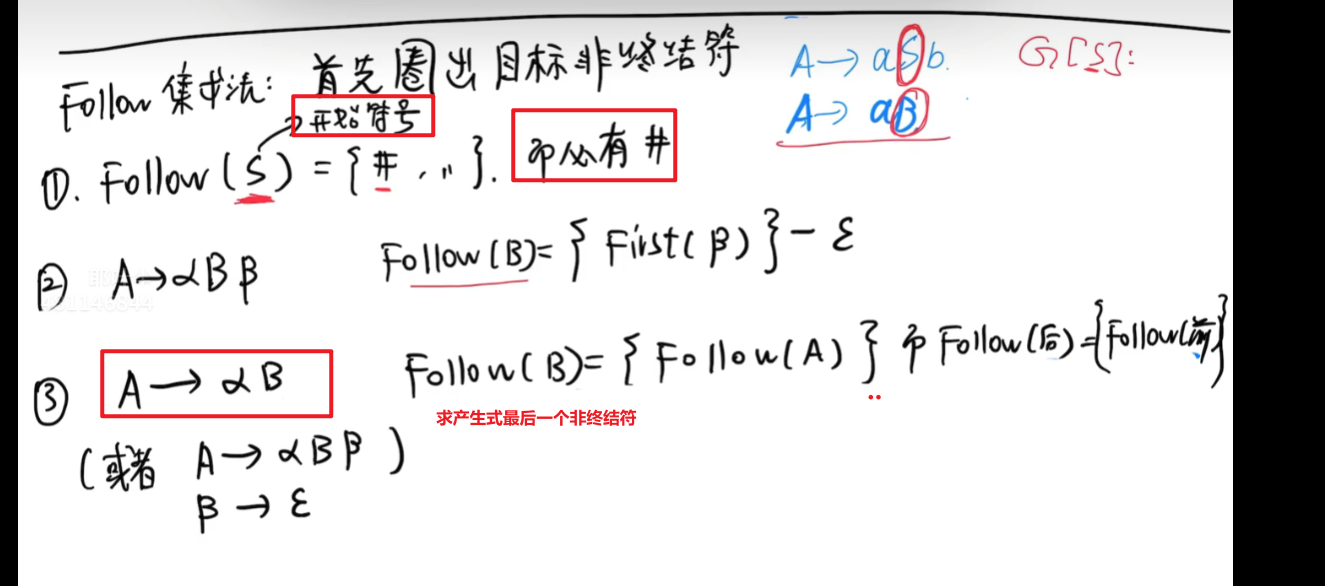 Follow 集求法: 首先圈出目标非终结符
A→aSb.
G[S]:
A→aB
开始符号
①. Follow(S)={#, ..}. 即必有#
② A→αBβ Follow(B)={First(β)}-ε
③ A→αB Follow(B)={Follow(A)} 即Follow(后)={Follow(前)}
求产生式最后一个非终结符
(或者 A→αBβ)
β→ε